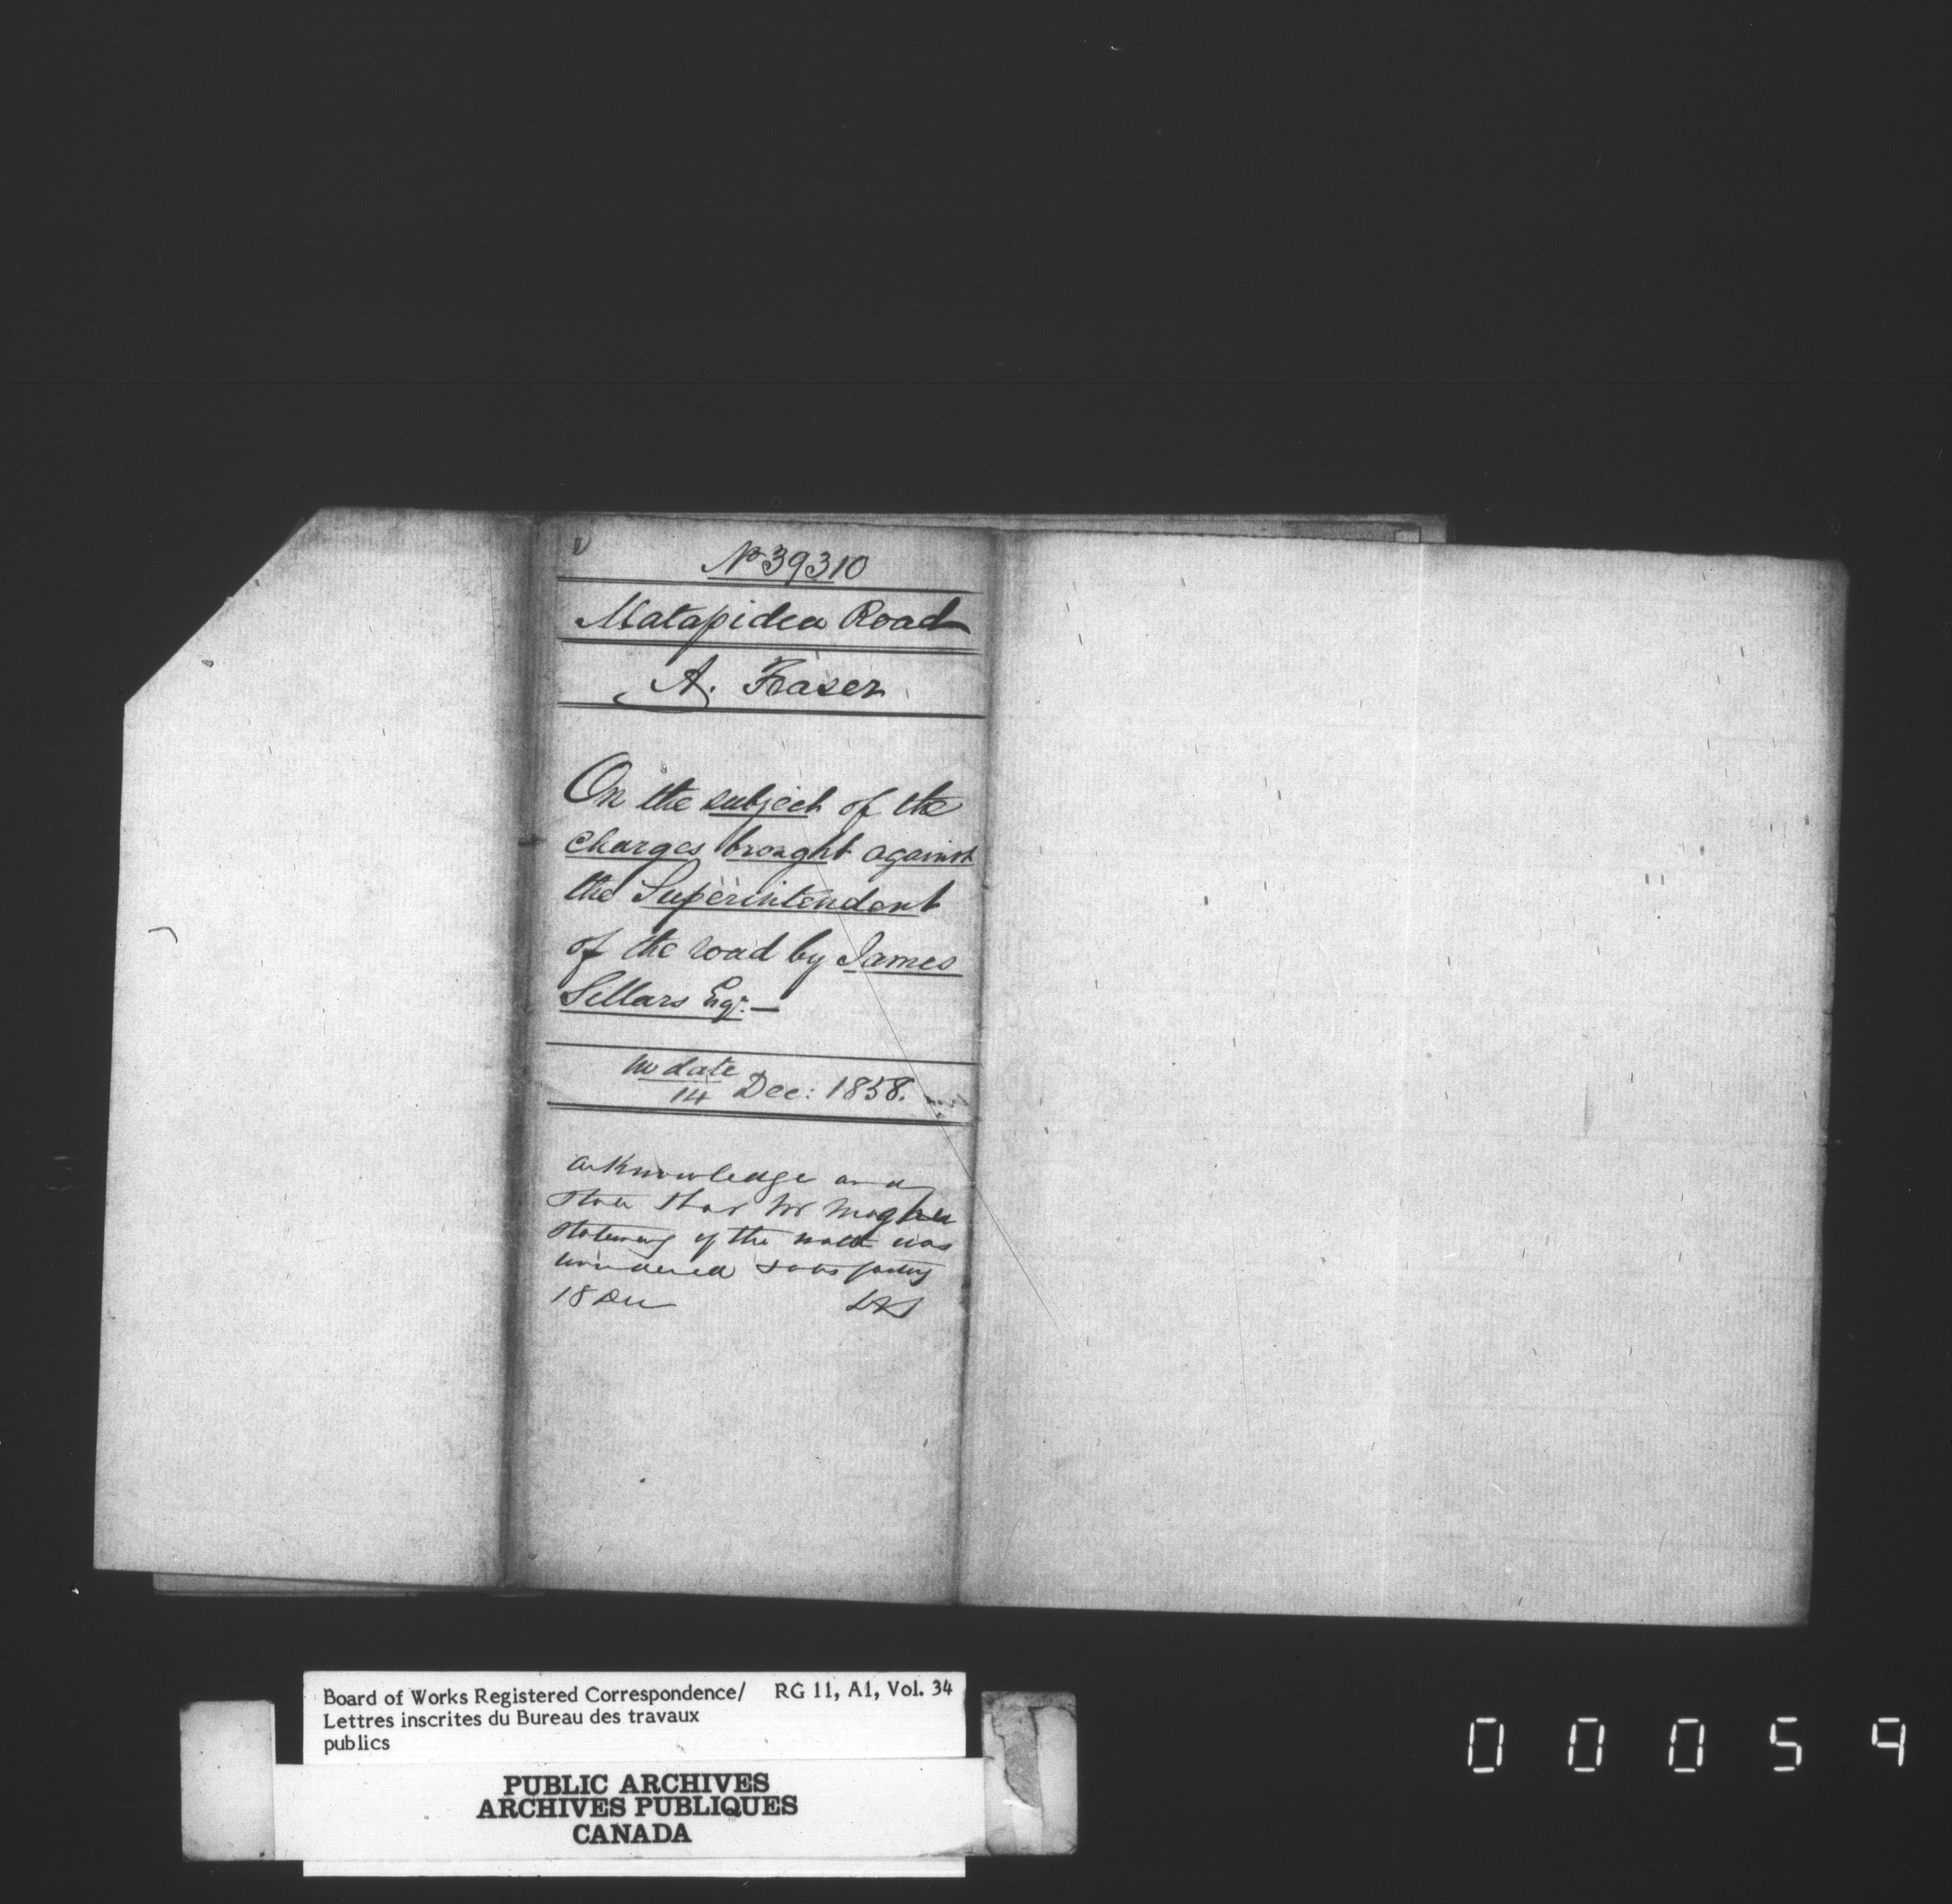 No 39310
Matapidea Road
A. Fraser
On the subject of the
charges brought against
the Superintendent
of the road by James
Sellars Esqr. —
no date
14 Dec: 1858.
acknowledge and
state that Mr
of the was
considered satisfactory
18 Dec
Board of Works Registered Correspondence/ RG 11, A1, Vol. 34
Lettres inscrites du Bureau des travaux
publics
PUBLIC ARCHIVES
ARCHIVES PUBLIQUES
CANADA
00059